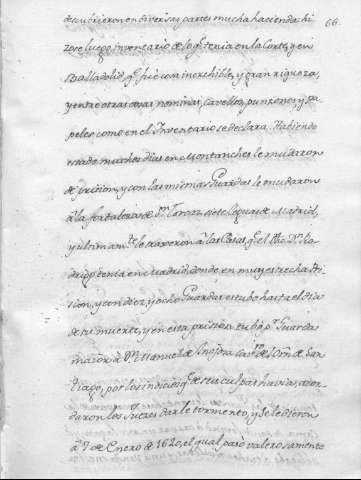 66.
descubrieron en diversas partes mucha hacienda hi
zose luego inventario de lo q̃ tenia en la Corte, y en
Balladolid q̃ fue con increhible, y gran riqueza,
y entre otras cosas nominas, cavellos, punzones, y pa
peles como en el Inventario se declara. Habiendo
estado muchos dias en Montanches le mudaron
de prision, y con las mismas Guardas le mudaron
à la fortaleza de Sⁿ Torcaz siete leguas de Madrid,
y ultimamᵗᵉ le traxeron à las Casas q̃ el dho Dⁿ Ro
drigo tenia en Madrid, donde en muy estrecha Pri
sion, y con diez y ocho Guardas estubo hasta el dia
de su muerte, y en esta prision tubo pʳ Guarda
maior à Dⁿ Manuel de Hinojosa Cavᵒ del Orñ de San
tiago, por los indicios q̃ de sus culpas havia, acor
daron los Jueces darle tormento, y se le dieron
à 7 de Enero de 1620, el qual pasò valerosamente